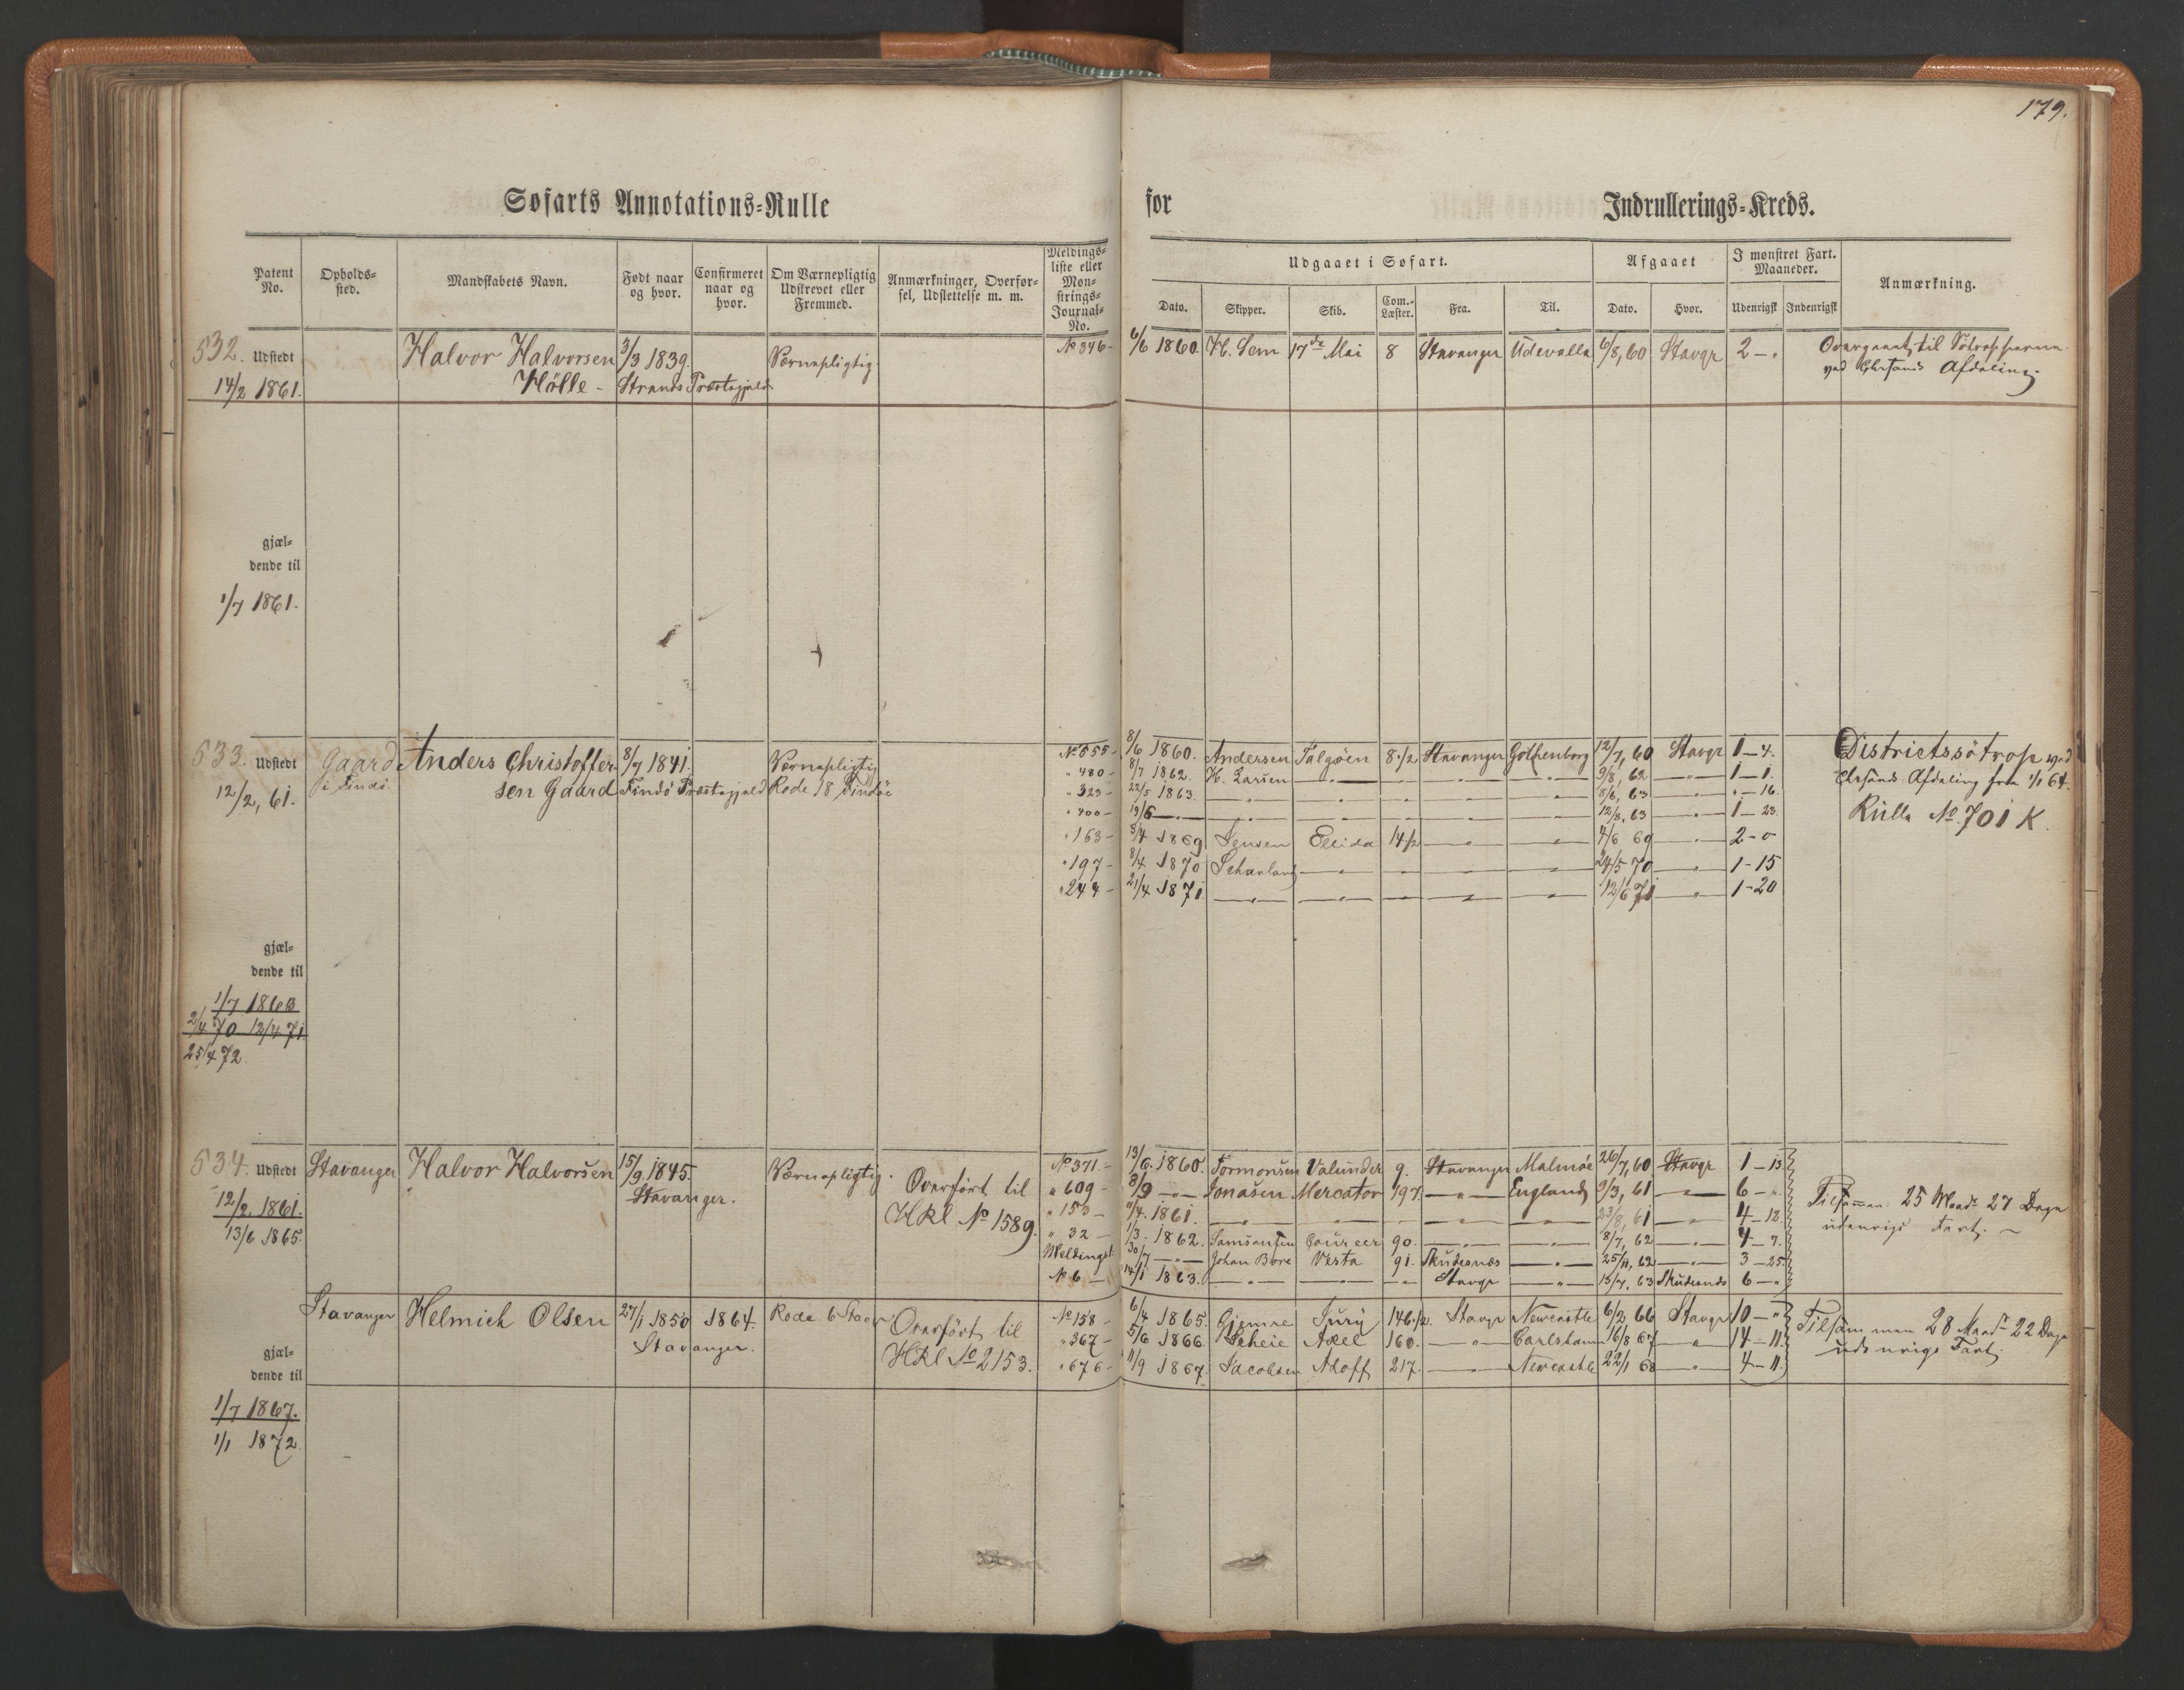 179.
Søfarts Annotations-Rulle for Indrullerings-Kreds.
Patent No. Opholds-sted. Mandskabets Navn. Født naar og hvor. Confirmeret naar og hvor. Om Værnepligtig Udskrevet eller Fremmed. Anmærkninger, Overførsel, Udslettelse m. m. Meldings-liste eller Mønstrings-Journal-No.
Udgaaet i Søfart. Afgaaet I mønstret Fart. Maaneder. Anmærkning.
Dato. Skipper. Skib. Com.-Læster. Fra. Til. Dato. Hvor. Udenrigsk Indenrigsk
532. Udstedt Halvor Halvorsen 3/3 1839. Værnepligtig No 346- 6/6 1860. H. Sem 17de Mai 8 Stavanger Udevalla 6/8, 60 Stavgr 2 - " Overgaaet til Søtropperne
14/2 1861. Hölle - Strands Præstegjeld ved Chrsands Afdeling.
gjæl-
dende til
1/7 1861.
533. Udstedt Gaard Anders Christoffer- 8/7 1841. Værnepligtig No 555- 8/6 1860. Andersen Talgøen 8 1/2 Stavanger Gothenborg 12/7, 60 Stavgr 1 - 4. Districtssötrop ved
12/2, 61. i Findö. sen Gaard Findö Præstegjeld Rode 18 Findöe " 480 - 8/7 1862. H. Larsen — " — — " — — " — — " — 9/8, 62 — " — 1 - 1. Chrsands Afdeling fra 1/1 64.
" 323 - 22/5 1863. — " — — " — — " — — " — — " — 8/6, 63 — " — " - 16. Rulle No. 701 K.
" 400 - 19/6 — " — — " — — " — — " — — " — — " — 12/8, 63 — " — 1 - 23.
" 163 - 5/4 1869 Jensen Elida 14 1/2 — " — — " — 4/6 69 — " — 2 - 0
" 197 - 8/4 1870 — " — — " — — " — — " — 24/5 70 — " — 1 - 15
" 244 - 21/4 1871 — " — — " — — " — — " — — " — 12/6 71 — " — 1 - 20
gjæl-
dende til
1/7 1863
2/4 70 12/4 71
25/4 72.
534. Udstedt Stavanger Halvor Halvorsen 15/9 1845. Værnepligtig. Overført til No 371. - 13/6. 1860. Tormonsen Valunder 9. Stavanger Malmøe 26/7, 60 Stavgr 1 - 13
12/2. 1861. Stavanger. HRl No 1589. " 609 - 8/9 — " — Jonasen Mercator 197. — " — England 9/3, 61 — " — 6 - " Tilsammen: 25 Maadr 27 Dage
13/6 1865. " 153 - 11/4. 1861. — " — — " — — " — — " — — " — 23/8, 61 — " — 4 - 12. udenrigs Fart. -
" 32 - 1/3. 1862. Samsonsen Coureer 90. — " — — " — 8/7, 62 — " — 4 - 7.
Meldingsl. 30/7 — " — Johan Bore Vesta 91. Skudesnæs — " — 25/11, 62 — " — 3 - 25
No 6 - 14/1 1863. — " — — " — — " — Stavgr — " — 15/7. 63 Skudesnæs 6 - "
Stavanger Helmich Olsen 27/1 1850 1864. Rode 6 Stavgr Overført til No 158 - 6/4 1865. Gjemre Jury 146 1/2. Stavgr Newcastle 6/2 66 Stavgr 10 - " Tilsammen 28 Maadr 22 Dage
Stavanger. HRl No 2153. " 367 - 5/6 1866. Scheie Axel 160. — " — Carlshamn 16/8 67 — " — 14 - 11. udenrigs Fart.
" 676 - 11/9 1867. Jacobsen Ahoff 217. — " — Newcastle 22/1 68 — " — 4 - 11.
gjæl-
dende til
1/7 1867.
1/1 1872.